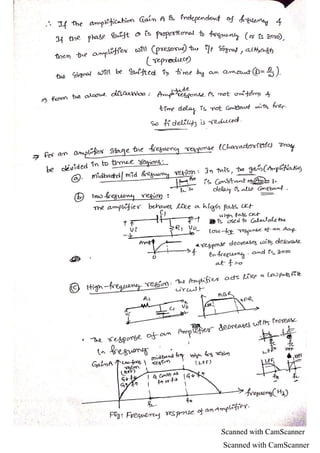 ∴ If the amplification Gain A is Independent of frequency &
If the phase shift θ is proportional to frequency (or is zero),
then the amplifier will (preserve) the i/p signal, although
(reproduce)
the signal will be shifted in time by an amount (D = θ/ω).
⇒ form the above discussion: Amplitude response is not uniform &
time delay is not constant with freq.
So fidelity is reduced.
⇒ For an amplifier stage the frequency response (characteristics) may
be devided in to three regions:
(a). Midband / mid frequency region: In this, the gain (Amplification)
is constant
delay is also constant.
(b) low frequency region:
The amplifier behaves like a high pass ckt
C1
high pass ckt
is used to calculate the
Vi R1 Vo low-fr response of an Amp.
Amp
* response decreases with decrease
f
0
in frequency. and is zero
at f = 0
(c) High-frequency region: The Amplifier acts like a low pass
circuit
R2 C2 Vo
• The response of an Amplifier decreases with increase
in frequency
Gain A
low freq region
midband freq region
High freq region
(HPF)
(LPF)
frequency (Hz)
Fig: Frequency response of an amplifier.
Scanned with CamScanner
Scanned with CamScanner